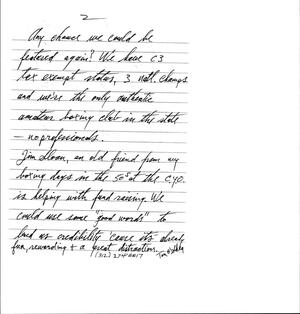 2
Any chance we could be
featured again? We have C3
tax exempt status, 3 natl. champs
and we're the only authentic
amateur boxing club in the state
— no professionals.
Jim Sloan, an old friend from my
boxing days in the 50's at the CYO.
is helping with fund raising. We
could use some "good words" to
lend us credibility 'cause it's already
fun, rewarding + a great distraction.
(312)